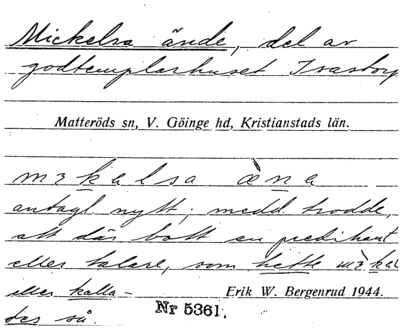 Mickelsa ände, del av
godtemplarhuset Ivastorp
Matteröds sn, V. Göinge hd, Kristianstads län.
mɜkalsa æna
antagl nytt; medd. trodde,
att där bott en predikant
eller talare, som hette
eller kalla-
Erik W. Bergenrud 1944.
des så.
Nr 5361.